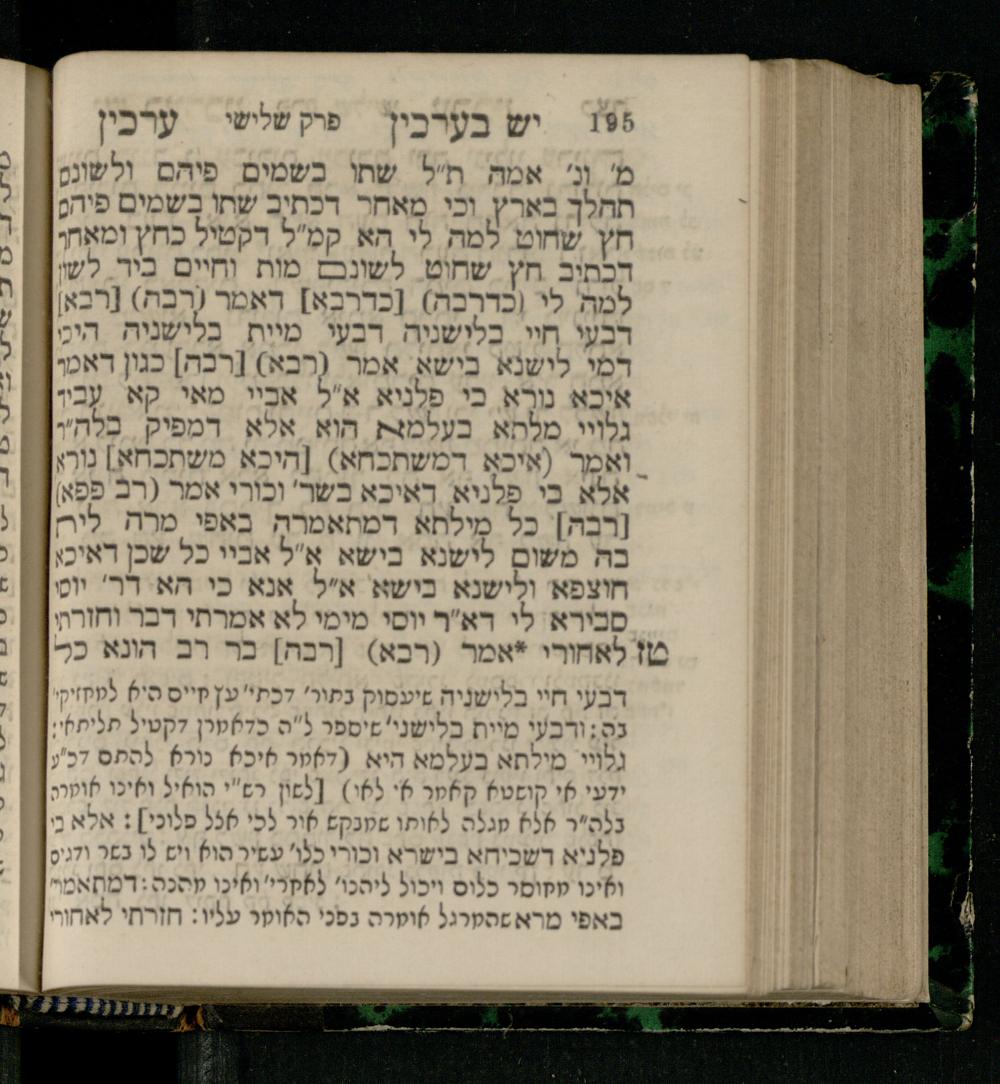 195 יש בערכין פרק שלישי ערכין
מ׳ ונ׳ אמה ת״ל שתו בשמים פיהם ולשונם
תהלך בארץ וכי מאחר דכתיב שתו בשמים פיהם
חץ שחוט למה לי הא קמ״ל דקטיל כחץ ומאחר
דכתיב חץ שחוט לשונם מות וחיים ביד לשון
למה לי (כדרבה) [כדרבא] דאמר (רבה) [רבא]
דבעי חיי בלישניה דבעי מיית בלישניה היכי
דמי לישנא בישא אמר (רבא) [רבה] כגון דאמר
איכא נורא בי פלניא א״ל אביי מאי קא עביד
גלויי מלתא בעלמא הוא אלא דמפיק בלה״ר
ואמר (איכא דמשתכחא) [היכא משתכחא] נורא
אלא בי פלניא דאיכא בשר׳ וכורי אמר (רב פפא)
[רבה] כל מילתא דמתאמרה באפי מרה לית
בה משום לישנא בישא א״ל אביי כל שכן דאיכא
חוצפא ולישנא בישא א״ל אנא כי הא דר׳ יוסי
סבירא לי דא״ר יוסי מימי לא אמרתי דבר וחזרתי
טז לאחורי *אמר (רבא) [רבה] בר רב הונא כל
דבעי חיי בלישניה שיעסוק בתור׳ דכתי׳ עץ חיים היא למחזיקי׳
בה: ודבעי מיית בלישני׳ שיספר ל״ה כדאמרן דקטיל תליתאי:
גלויי מילתא בעלמא היא (דאמר איכא נורא להתם דכ״ע
ידעי אי קושטא קאמר אי לאו) [לשון רש״י הואיל ואינו אומרה
בלה״ר אלא מגלה לאותו שמבקש אור לכי אזל פלוני]: אלא בי
פלניא דשכיחא בישרא וכורי כלו׳ עשיר הוא ויש לו בשר ודגים
ואינו מחוסר כלום ויכול ליהנו׳ לאחרי׳ ואינו מהנה: דמתאמר׳
באפי מרא שהמרגל אומרה בפני האומר עליו: חזרתי לאחורי